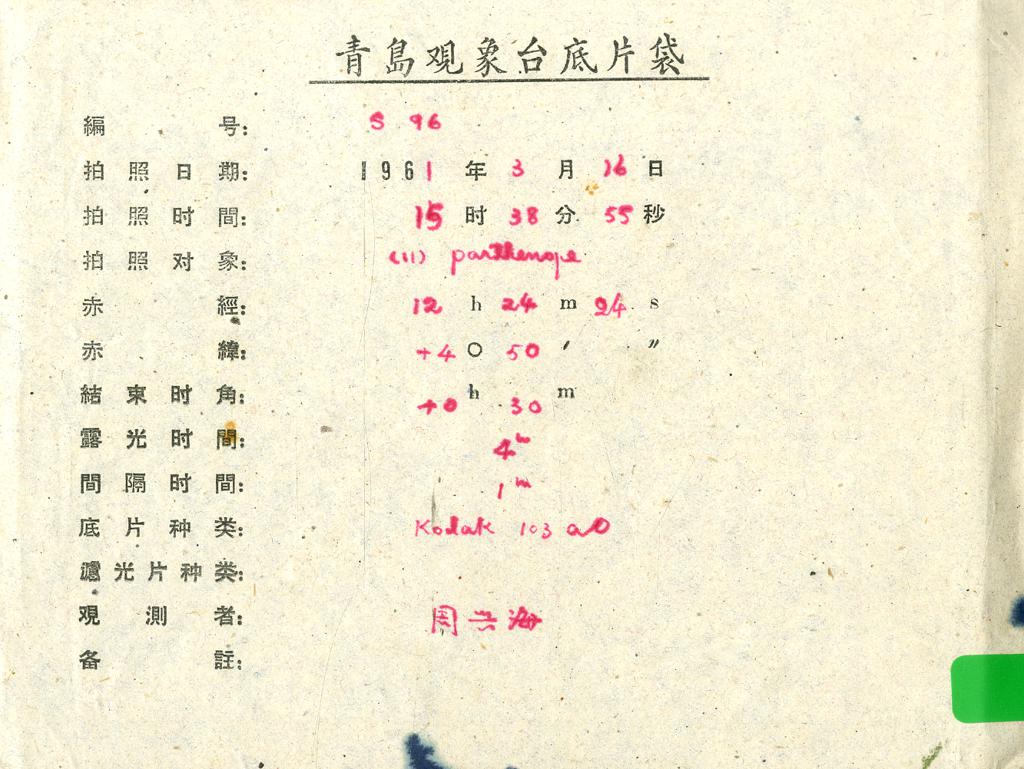 青島观象台底片袋
編 号: S 96
拍照日期: 1961 年 3 月 16 日
拍照时間: 15 时 38 分 55 秒
拍照对象: (11) parthenope
赤 經: 12 h 24 m 24 s
赤 緯: +4 ° 50 ′ ″
結束时角: +0 h 30 m
露光时間: 4m
間隔时間: 1m
底片种类: Kodak 103 aO
濾光片种类:
观測者: 周兴海
备 註: